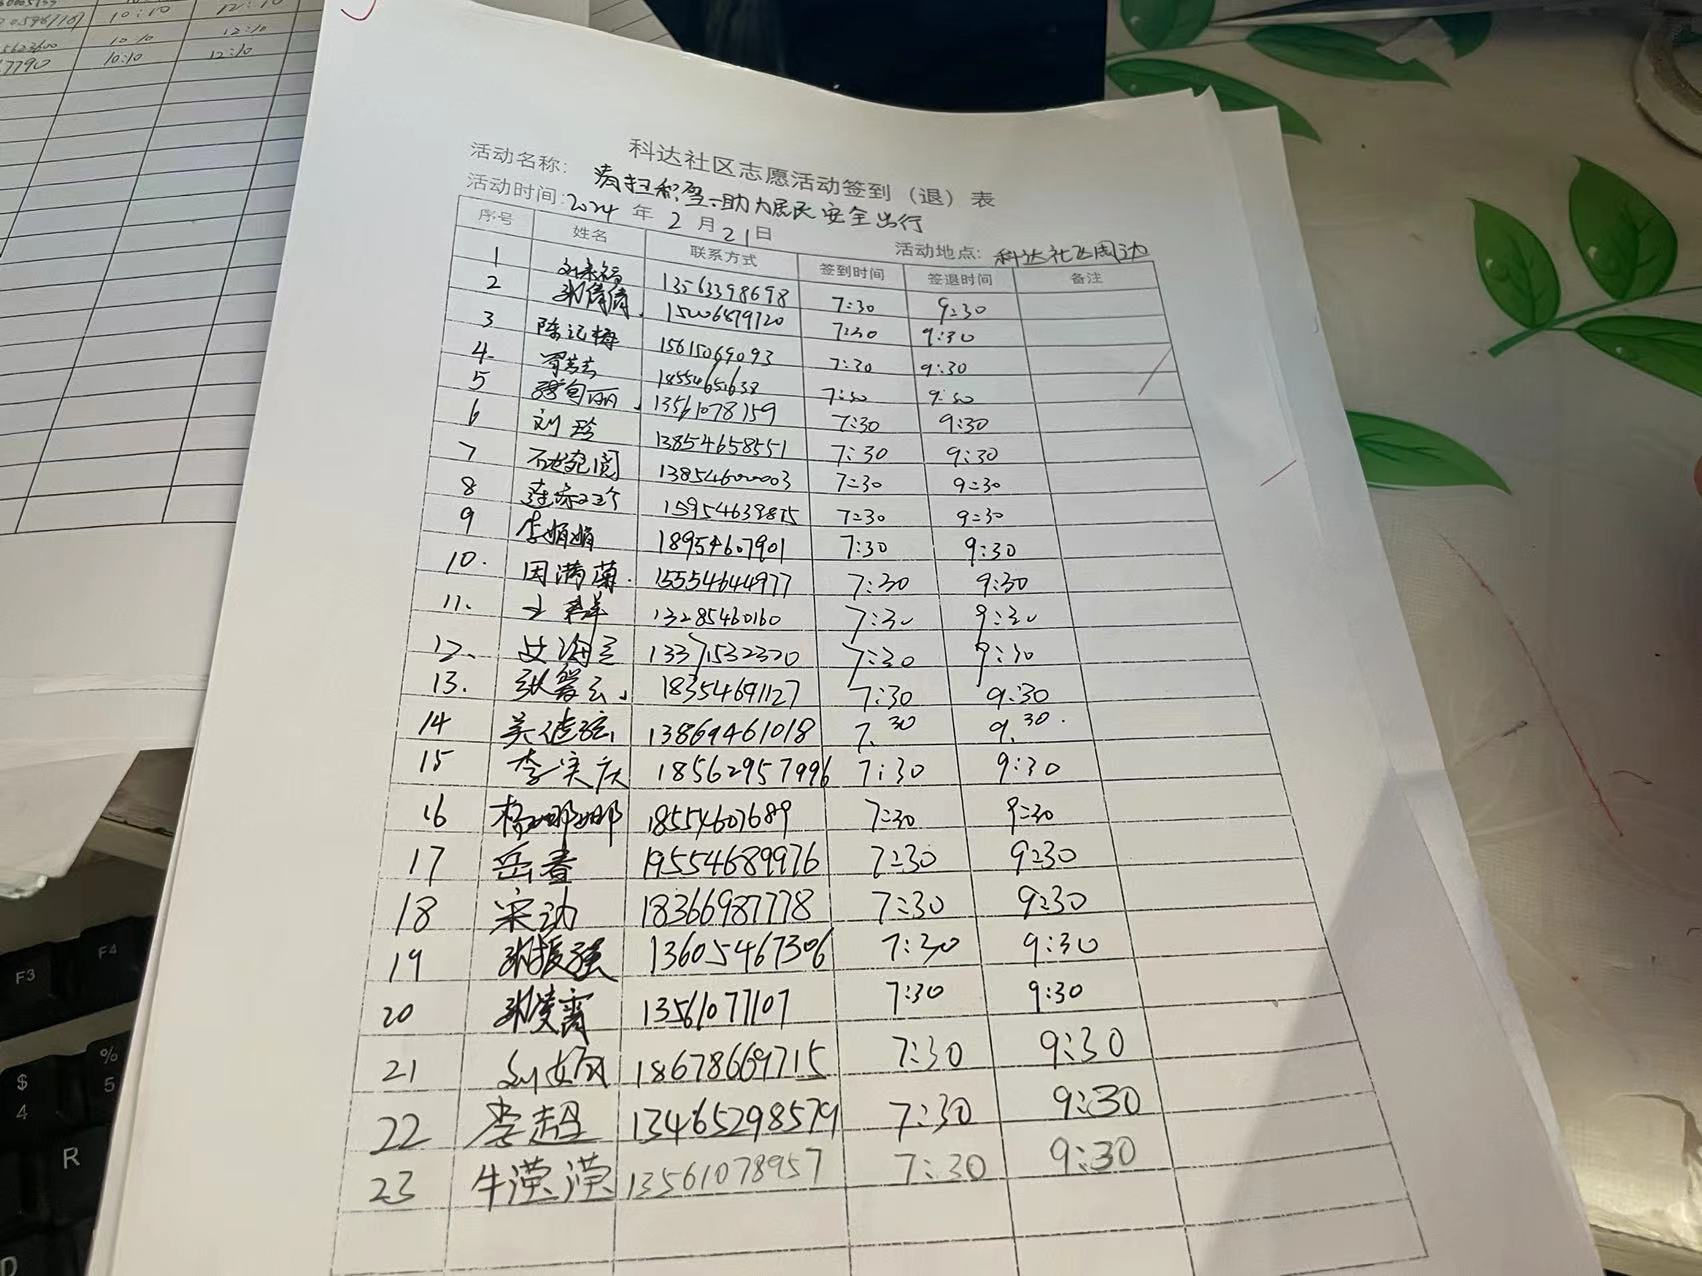 10:10 12:10
10:10 12:10
7790 10:10 12:10
科达社区志愿活动签到（退）表
活动名称: 清扫积雪、助力居民安全出行
活动时间: 2024 年 2 月 21 日 活动地点: 科达社区周边
序号 姓名 联系方式 签到时间 签退时间 备注
1 13563398698 7:30 9:30
2 张倩倩 15006879720 7:30 9:30
3 陈记梅 15615069093 7:30 9:30
4 7:30 9:30
5 13561078159 7:30 9:30
6 刘珍 13854658551 7:30 9:30
7 13854600003 7:30 9:30
8 15954639875 7:30 9:30
9 李娟娟 18954607901 7:30 9:30
10. 因满菊 15554644977 7:30 9:30
11. 13285460160 7:30 9:30
12. 13371532320 7:30 9:30
13. 18354691127 7:30 9:30
14 13869461018 7:30 9:30
15 李宾庆 18562957996 7:30 9:30
16 杨娜娜 18554607689 7:30 9:30
17 岳春 19554689976 7:30 9:30
18 宋动 18366987778 7:30 9:30
19 张振强 13605467306 7:30 9:30
20 13561077107 7:30 9:30
21 18678669715 7:30 9:30
22 李超 13465298579 7:30 9:30
23 牛滢滢 13561078957 7:30 9:30
F3
F4
$
4
%
5
R
D